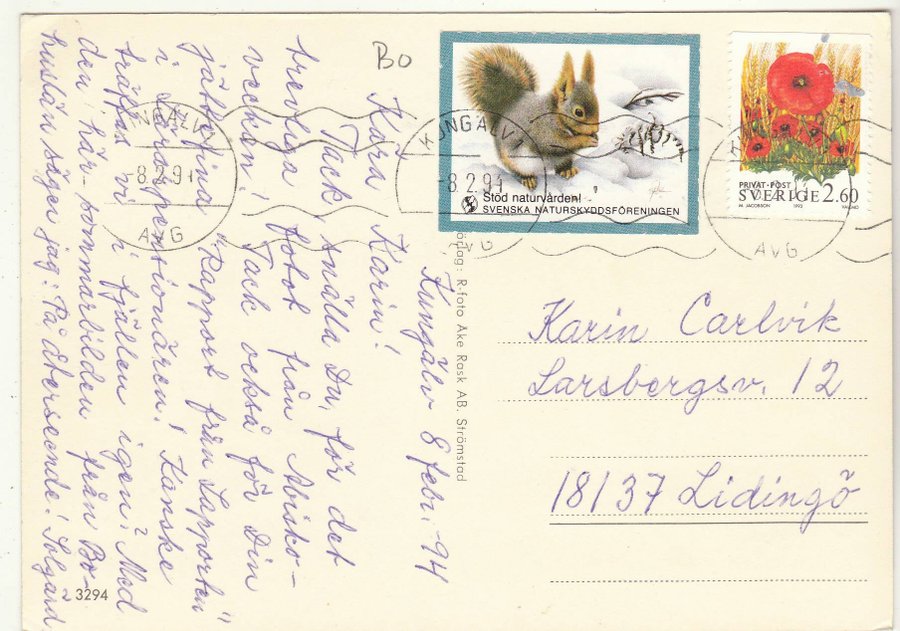 Bo
Kungälv 8 febr. -94
Kära Karin!
Tack snälla Du, för det
trevliga fotot från Abisko-
veckan! Tack också för Din
jättefina "Rapport från Lapporten"
i Lärarpensionären! Kanske
träffas vi i fjällen igen? Med
den här sommarbilden från Bo-
huslän säger jag: På återseende! Solgärd
3294
ödtag: R-foto Åke Rask AB. Strömstad
Stöd naturvården!
SVENSKA NATURSKYDDSFÖRENINGEN
PRIVAT-POST
SVERIGE 2.60
M. JACOBSON 1993
KUNGÄLV
-8.2.94
AVG
KUNGÄLV
-8.2.94
AVG
Karin Carlvik
Larsbergsv. 12
18137 Lidingö